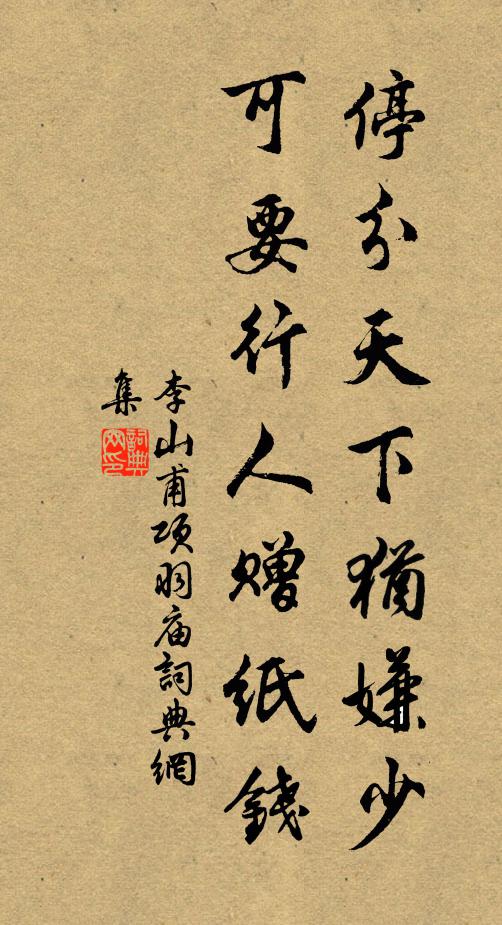 停分天下猶嫌少
可要行人赠紙錢
李山甫项羽庙詞典網
集
詞典网印